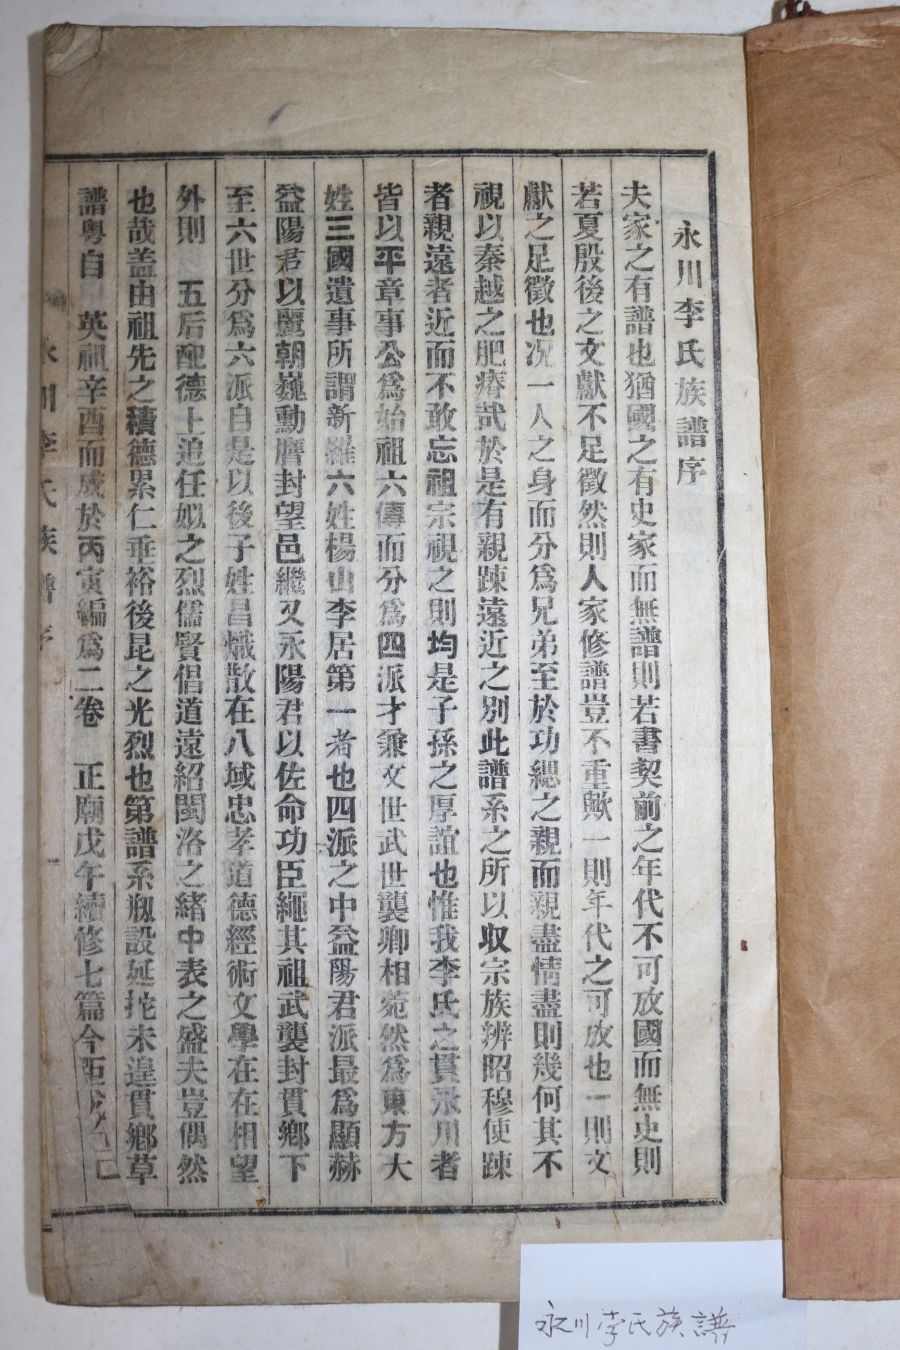 永川李氏族譜序
夫家之有譜也猶國之有史家而無譜則若書契前之年代不可放國而無史則
若夏殷後之文獻不足徵然則人家修譜豈不重歟一則年代之可放也一則文
獻之足徵也况一人之身而分爲兄弟至於功緦之親而親盡情盡則幾何其不
視以秦越之肥瘠哉於是有親踈遠近之別此譜系之所以収宗族辨昭穆使踈
者親遠者近而不敢忘祖宗視之則均是子孫之厚誼也惟我李氏之貫永川者
皆以平章事公爲始祖六傳而分爲四派才兼文世武世襲卿相菀然爲東方大
姓三國遺事所謂新羅六姓楊山李居第一者也四派之中益陽君派最爲顯赫
益陽君以麗朝巍勳膺封望邑繼又永陽君以佐命功臣繩其祖武襲封貫鄉下
至六世分爲六派自是以後子姓昌熾散在八域忠孝道德經術文學在在相望
外則 五后配德十追任姒之烈儒賢倡道遠紹閩洛之緖中表之盛夫豈偶然
也哉盖由祖先之積德累仁垂裕後昆之光烈也第譜系刱設延拕未遑貫鄉草
譜粤自 英祖辛酉而成於丙寅編爲二卷 正廟戊午續修七篇今距
永川李氏族譜序 一
永川李氏族譜